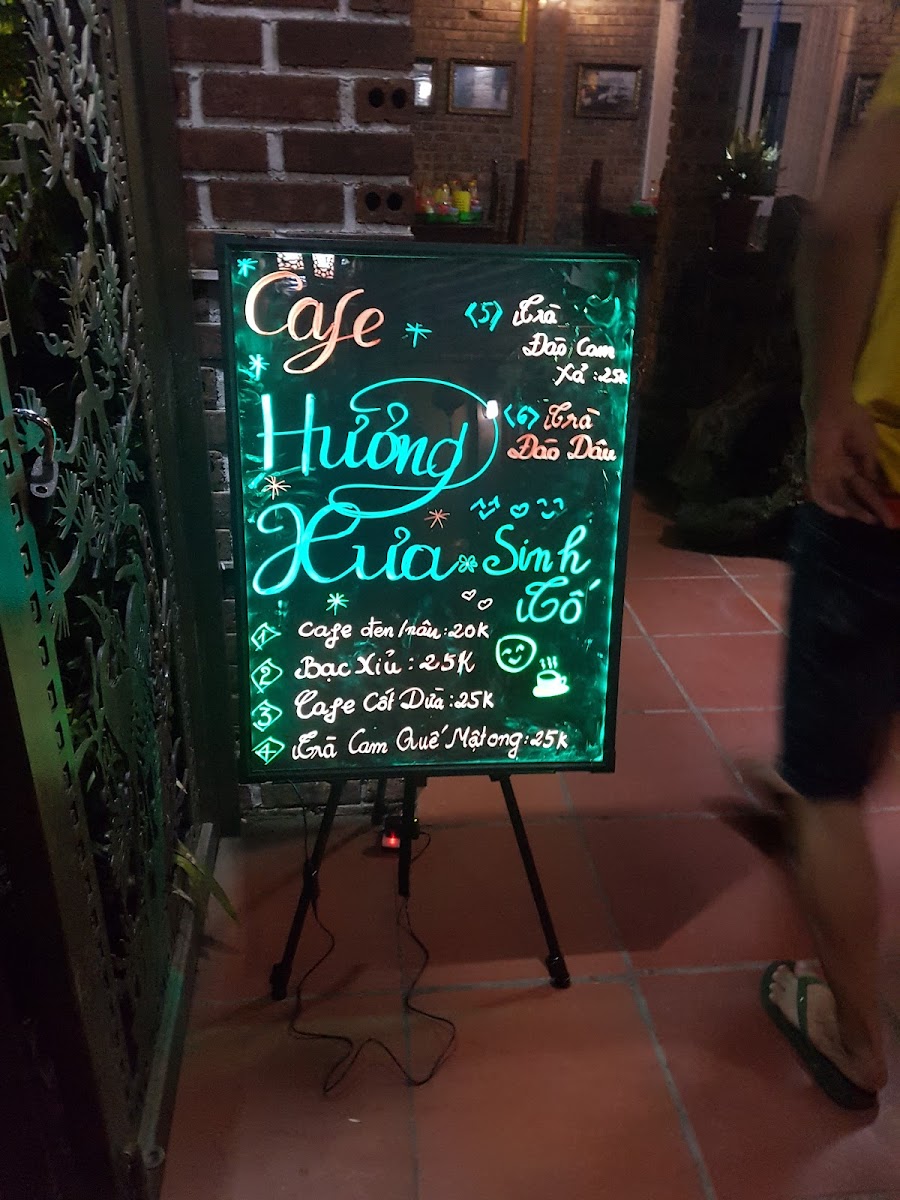 Cafe
Hưởng
Xưa
Sinh
Tố
1 Cafe đen/nâu: 20k
2 Bạc Xỉu: 25K
3 Cafe Cốt Dừa: 25k
4 Trà Cam Quế Mật ong: 25k
<5> Trà
Đào Cam
Xả: 25k
<6> Trà
Đào Dâu